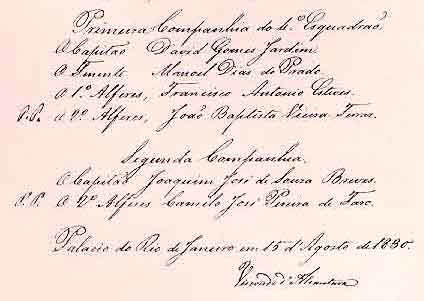 Primeira Companhia do 4º Esquadrão
O Capitão David Gomes Jardim
O Tenente Manoel Dias do Prado
O 1º Alferes, Francisco Antonio Esteves.
P.P. O 2º Alferes, João Baptista Vieira Ferraz.
Segunda Companhia.
O Capitão Joaquim José de Souza Breves.
P.P. O 2º Alferes Camilo José Pereira de Faro.
Palacio do Rio de Janeiro em 15 d'Agosto de 1830.
Visconde d'Alcantara